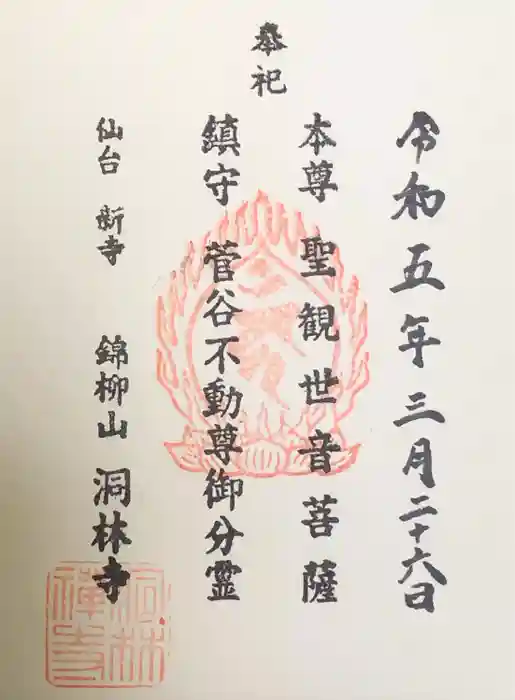 奉祀
令和五年三月二十六日
本尊 聖観世音菩薩
鎮守 菅谷不動尊御分霊
仙台 新寺 錦柳山 洞林寺
洞林
禅寺